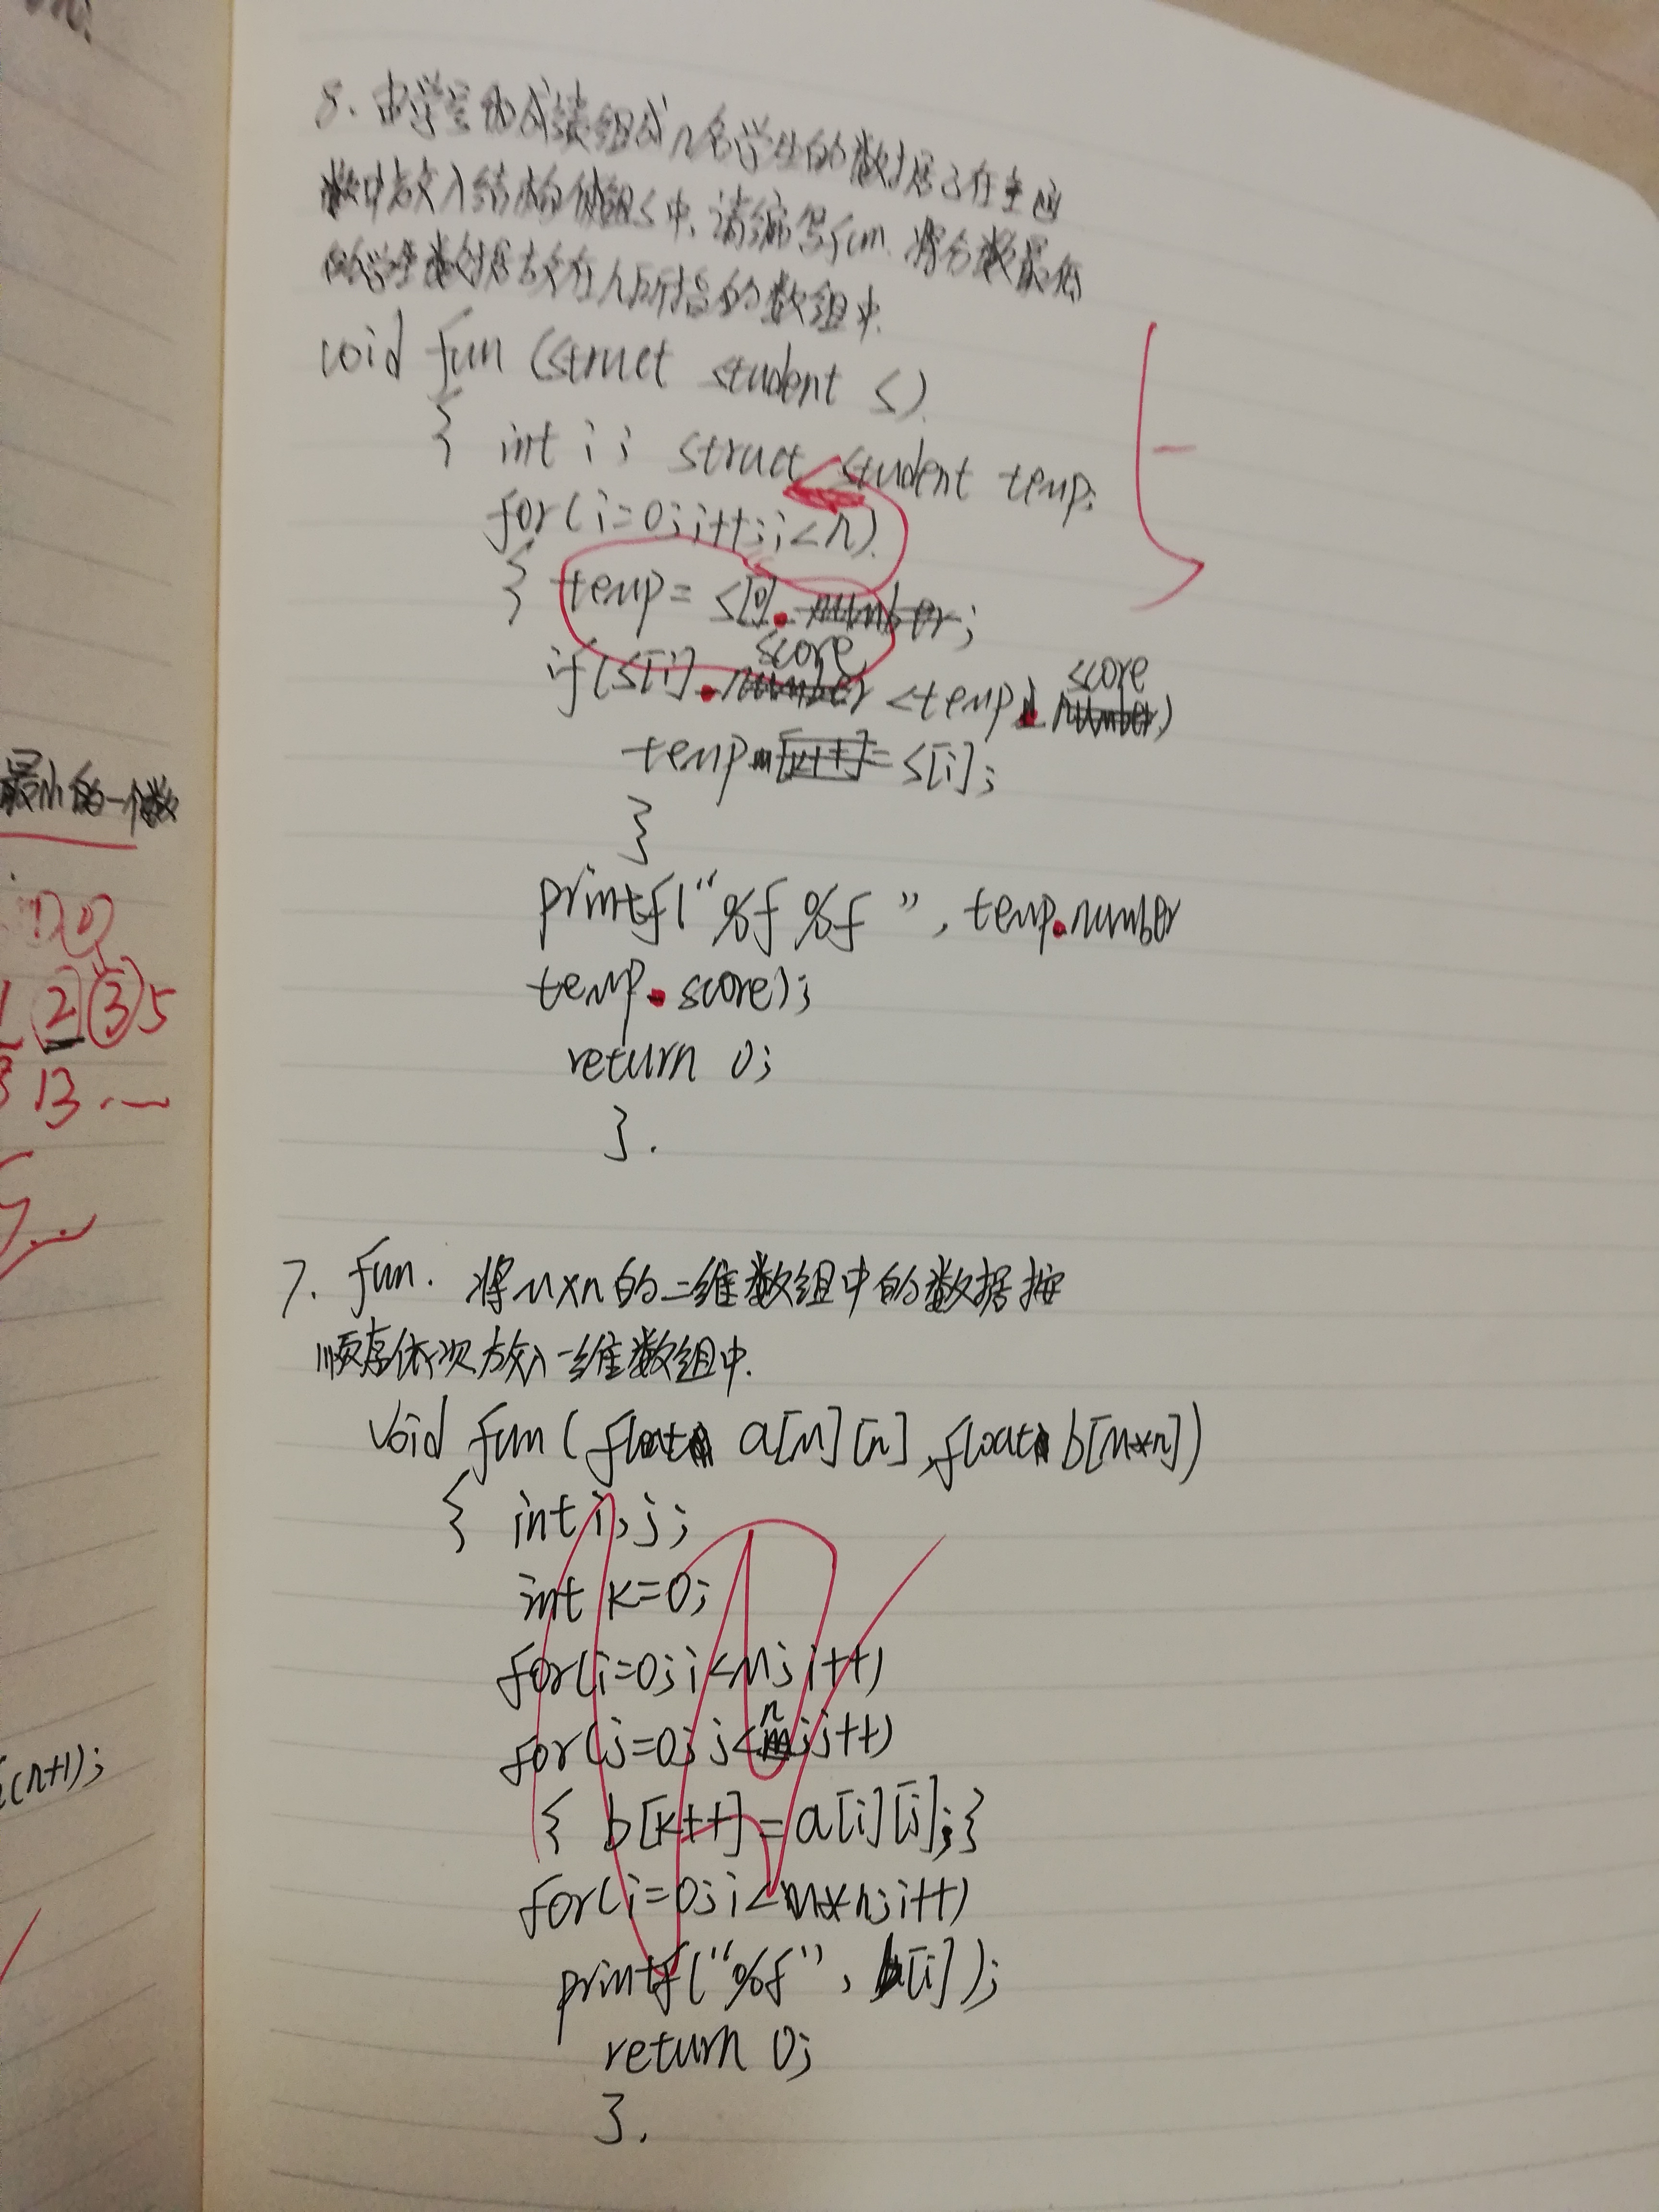 最小的一个数
1 2 3 5
13 ...
(n+1);
8. 由学号和成绩组成n名学生的数据已在主函
数中放入结构体组s中,请编写fun.将分数最低
的学生数据放在h所指的数组中.
void fun (struct student s).
{ int i; struct student temp;
for(i=0;i++;i<n).
{ temp = s[0].number;
score score
if(s[i].number <temp.number)
temp [k++]= s[i];
}
printf("%f %f ", temp.number
temp.score);
return 0;
}.
7. fun. 将m×n的二维数组中的数据按
顺序依次放入一维数组中.
void fun ( float a[m][n],float b[m*n])
{ int i,j;
int k=0;
for(i=0;i<m;i++)
for(j=0;j<n;j++)
{ b[k++]=a[i][j];}
for(i=0;i<m*n;i++)
printf("%f", b[i]);
return 0;
}.